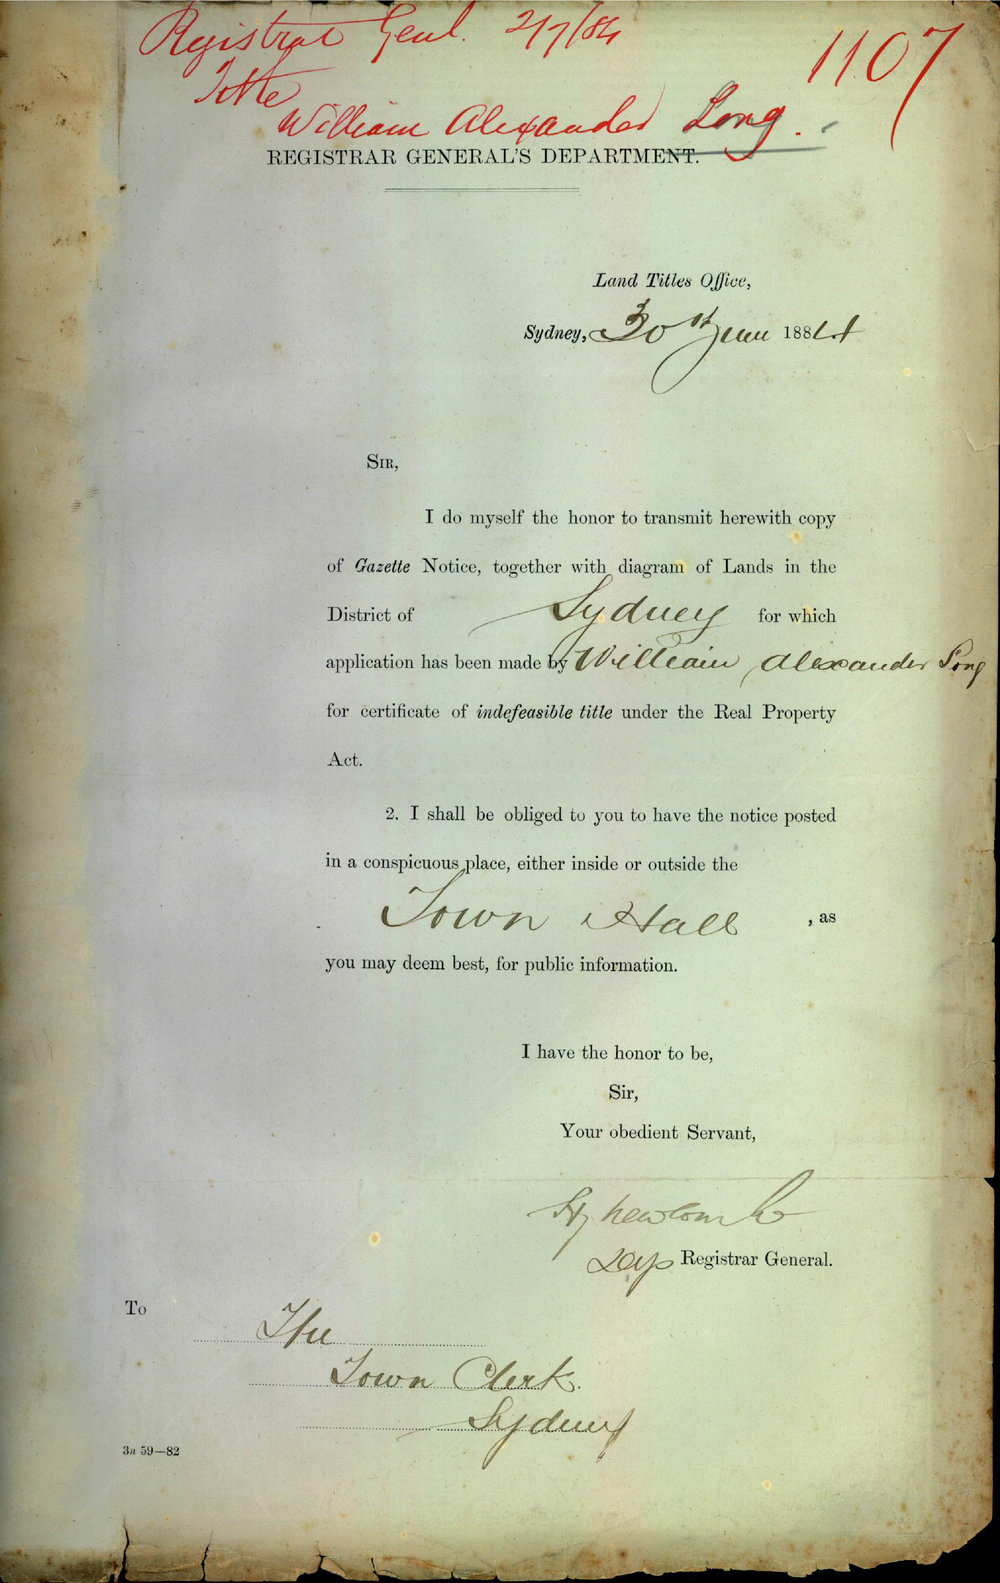 Registrar Genl. 2/7/84
1107
Title
William Alexander Long.
REGISTRAR GENERAL'S DEPARTMENT.
Land Titles Office,
Sydney, 30th June 1884
SIR,
I do myself the honor to transmit herewith copy
of Gazette Notice, together with diagram of Lands in the
District of Sydney for which
application has been made by William Alexander Long
for certificate of indefeasible title under the Real Property
Act.
2. I shall be obliged to you to have the notice posted
in a conspicuous place, either inside or outside the
Town Hall , as
you may deem best, for public information.
I have the honor to be,
Sir,
Your obedient Servant,
Newcombe
Dep Registrar General.
To
The
Town Clerk
Sydney
3n 59—82